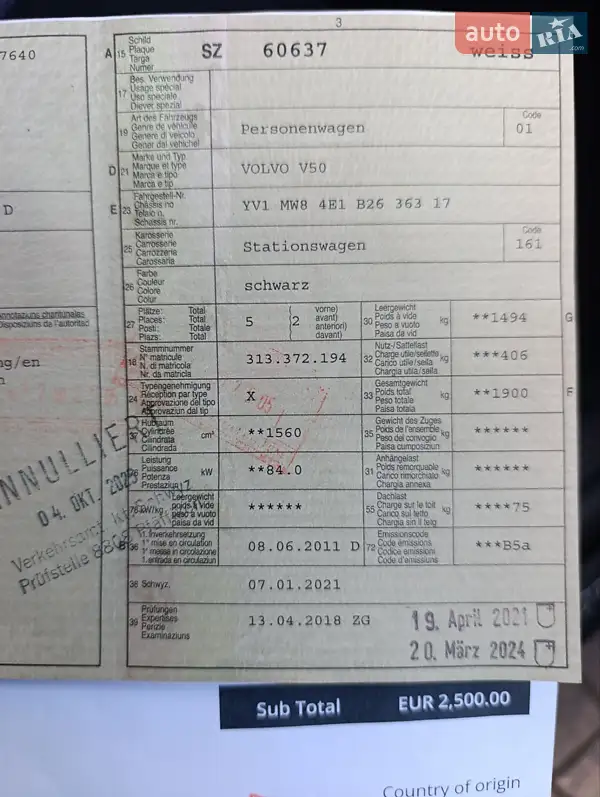 3
auto RIA .com
7640
A 15 Schild Plaque Targa Numer SZ 60637 weiss
17 Bes. Verwendung
Usage spécial
Uso speciale
Diever spezial
19 Art des Fahrzeugs
Genre de véhicule
Genere di veicolo
Gener dal vehichel
Personenwagen
Code
01
D 21 Marke und Typ
Marque et type
Marca e tipo
Marca e tip
VOLVO V50
D
E 23 Fahrgestell-Nr.
Châssis no
Telaio n.
Schassis nr.
YV1 MW8 4E1 B26 363 17
25 Karosserie
Carrosserie
Carrozzeria
Carossaria
Stationswagen
Code
161
26 Farbe
Couleur
Colore
Colur
schwarz
27 Plätze: Total
Places: Total
Posti: Totale
Plazs: Total
5 (2
vorne)
avant)
anteriori)
davant)
30 Leergewicht
Poids à vide
Peso a vuoto
Paisa da vid
kg **1494 G
18 Stammnummer
N° matricule
N. di matricola
Nr. da matricla
313.372.194
32 Nutz-/Sattellast
Charge utile/sellette
Carico utile/sella
Chargia utila/sella
kg ***406
ng/en
24 Typengenehmigung
Réception par type
Approvazione del tipo
Approvaziun dal tip
X
33 Gesamtgewicht
Poids total
Peso totale
Paisa totala
kg **1900 F
37 Hubraum
Cylindrée
Cilindrata
Cilindrada
cm³ **1560
35 Gewicht des Zuges
Poids de l'ensemble
Peso del convoglio
Paisa cumposiziun
kg ******
Leistung
Puissance
Potenza
Prestaziun
kW **84.0
31 Anhängelast
Poids remorquable
Carico rimorchiato
Chargia annexa
kg ******
Leergewicht
poids à vide
peso a vuoto
paisa da vid
******
55 Dachlast
Charge sur le toit
Carico sul tetto
Chargia sin il tetg
kg ****75
36 1. Inverkehrsetzung
1re mise en circulation
1a messa in circolazione
1. entrada en circulaziun
08.06.2011 D
72 Emissionscode
Code émissions
Codice emissioni
Code d'emissiuns
***B5a
38 Schwyz,
07.01.2021
39 Prüfungen
Expertises
Perizie
Examinaziuns
13.04.2018 ZG
19. April 2021
20. März 2024
04. OKT.
Prüfstelle 8808
Sub Total EUR 2,500.00
Country of origin